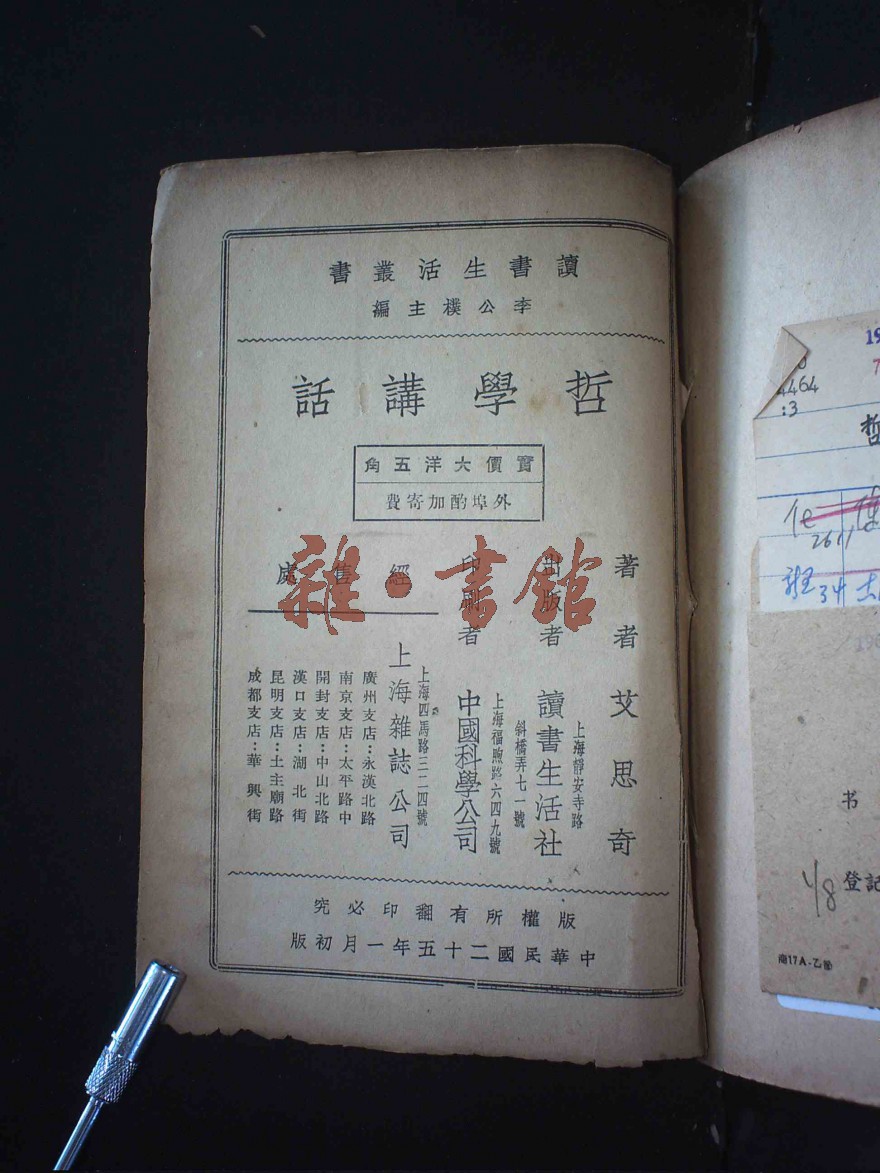 讀書生活叢書
李公樸主編
哲學講話
實價大洋五角
外埠酌加寄費
著者 艾思奇
出版者 讀書生活社
上海靜安寺路
斜橋弄七一號
印刷者 中國科學公司
上海福煦路六四九號
經售處
上海雜誌公司
上海四馬路三二四號
廣州支店：永漢北路
南京支店：太平路中
開封支店：中山北路
漢口支店：湖北街
昆明支店：土主廟路
成都支店：華興街
版權所有翻印必究
中華民國二十五年一月初版
雜·書館
4464
:3
2611
书
登記
1/8
南17A·乙